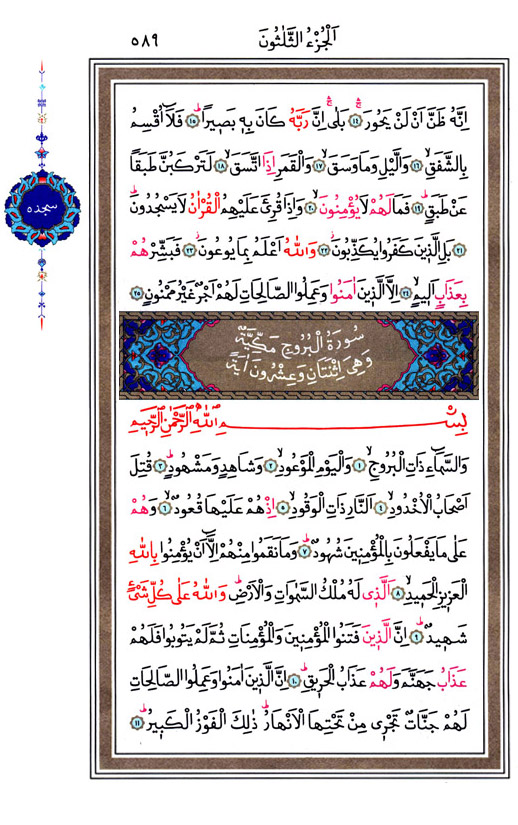 اَلْجُزْءُ الثَّلٰثُونَ ٥٨٩
اِنَّهُ ظَنَّ اَنْ لَنْ يَحُورَۚ ﴿١٤﴾ بَلٰىۚ اِنَّ رَبَّهُ كَانَ بِه۪ بَص۪يراًۜ ﴿١٥﴾ فَلَٓا اُقْسِمُ
بِالشَّفَقِۙ ﴿١٦﴾ وَالَّيْلِ وَمَا وَسَقَۙ ﴿١٧﴾ وَالْقَمَرِ اِذَا اتَّسَقَۙ ﴿١٨﴾ لَتَرْكَبُنَّ طَبَقاً
عَنْ طَبَقٍۜ ﴿١٩﴾ فَمَا لَهُمْ لَا يُؤْمِنُونَۙ ﴿٢٠﴾ وَاِذَا قُرِئَ عَلَيْهِمُ الْقُرْاٰنُ لَا يَسْجُدُونَۜ
سجده
﴿٢١﴾ بَلِ الَّذ۪ينَ كَفَرُوا يُكَذِّبُونَۘ ﴿٢٢﴾ وَاللّٰهُ اَعْلَمُ بِمَا يُوعُونَۘ ﴿٢٣﴾ فَبَشِّرْهُمْ
بِعَذَابٍ اَل۪يمٍۙ ﴿٢٤﴾ اِلَّا الَّذ۪ينَ اٰمَنُوا وَعَمِلُوا الصَّالِحَاتِ لَهُمْ اَجْرٌ غَيْرُ مَمْنُونٍ ﴿٢٥﴾
سُورَةُ الْبُرُوجِ مَكِّيَّةٌ
وَهِىَ اِثْنَتَانِ وَعِشْرُونَ اٰيَةً
بِسْمِ اللّٰهِ الرَّحْمٰنِ الرَّح۪يمِ
وَالسَّمَٓاءِ ذَاتِ الْبُرُوجِۙ ﴿١﴾ وَالْيَوْمِ الْمَوْعُودِۙ ﴿٢﴾ وَشَاهِدٍ وَمَشْهُودٍۜ ﴿٣﴾ قُتِلَ
اَصْحَابُ الْاُخْدُودِۙ ﴿٤﴾ اَلنَّارِ ذَاتِ الْوَقُودِۙ ﴿٥﴾ اِذْ هُمْ عَلَيْهَا قُعُودٌۙ ﴿٦﴾ وَهُمْ
عَلٰى مَا يَفْعَلُونَ بِالْمُؤْمِن۪ينَ شُهُودٌۜ ﴿٧﴾ وَمَا نَقَمُوا مِنْهُمْ اِلَّٓا اَنْ يُؤْمِنُوا بِاللّٰهِ
الْعَز۪يزِ الْحَم۪يدِۙ ﴿٨﴾ اَلَّذ۪ى لَهُ مُلْكُ السَّمٰوَاتِ وَالْاَرْضِۜ وَاللّٰهُ عَلٰى كُلِّ شَىْءٍ
شَه۪يدٌۜ ﴿٩﴾ اِنَّ الَّذ۪ينَ فَتَنُوا الْمُؤْمِن۪ينَ وَالْمُؤْمِنَاتِ ثُمَّ لَمْ يَتُوبُوا فَلَهُمْ
عَذَابُ جَهَنَّمَ وَلَهُمْ عَذَابُ الْحَر۪يقِۜ ﴿١٠﴾ اِنَّ الَّذ۪ينَ اٰمَنُوا وَعَمِلُوا الصَّالِحَاتِ
لَهُمْ جَنَّاتٌ تَجْر۪ى مِنْ تَحْتِهَا الْاَنْهَارُۜ ذٰلِكَ الْفَوْزُ الْكَب۪يرُۜ ﴿١١﴾